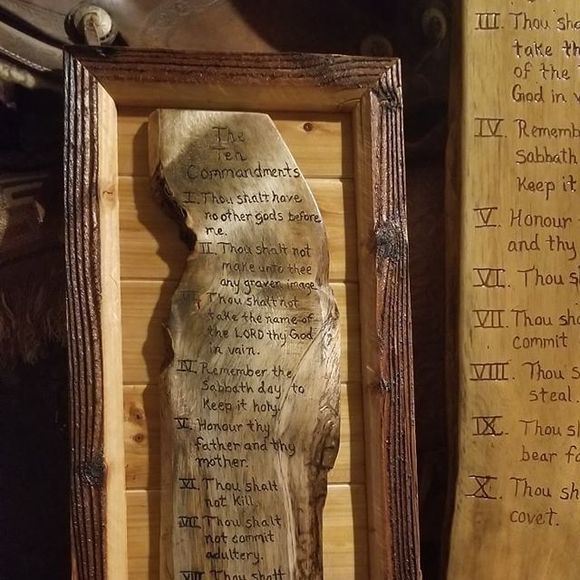 The
Ten
Commandments
I. Thou shalt have
no other gods before
me.
II. Thou shalt not
make unto thee
any graven image
III. Thou shalt not
take the name of
the LORD thy God
in vain.
IV. Remember the
Sabbath day to
Keep it holy.
V. Honour thy
father and thy
mother.
VI. Thou shalt
not kill.
VII. Thou shalt
not commit
adultery.
VIII. Thou shalt
III. Thou sha
take th
of the
God in v
IV. Rememb
Sabbath
Keep it
V. Honour
and thy
VI. Thou s
VII. Thou sha
commit
VIII. Thou s
steal.
IX. Thou sh
bear fa
X. Thou sh
covet.